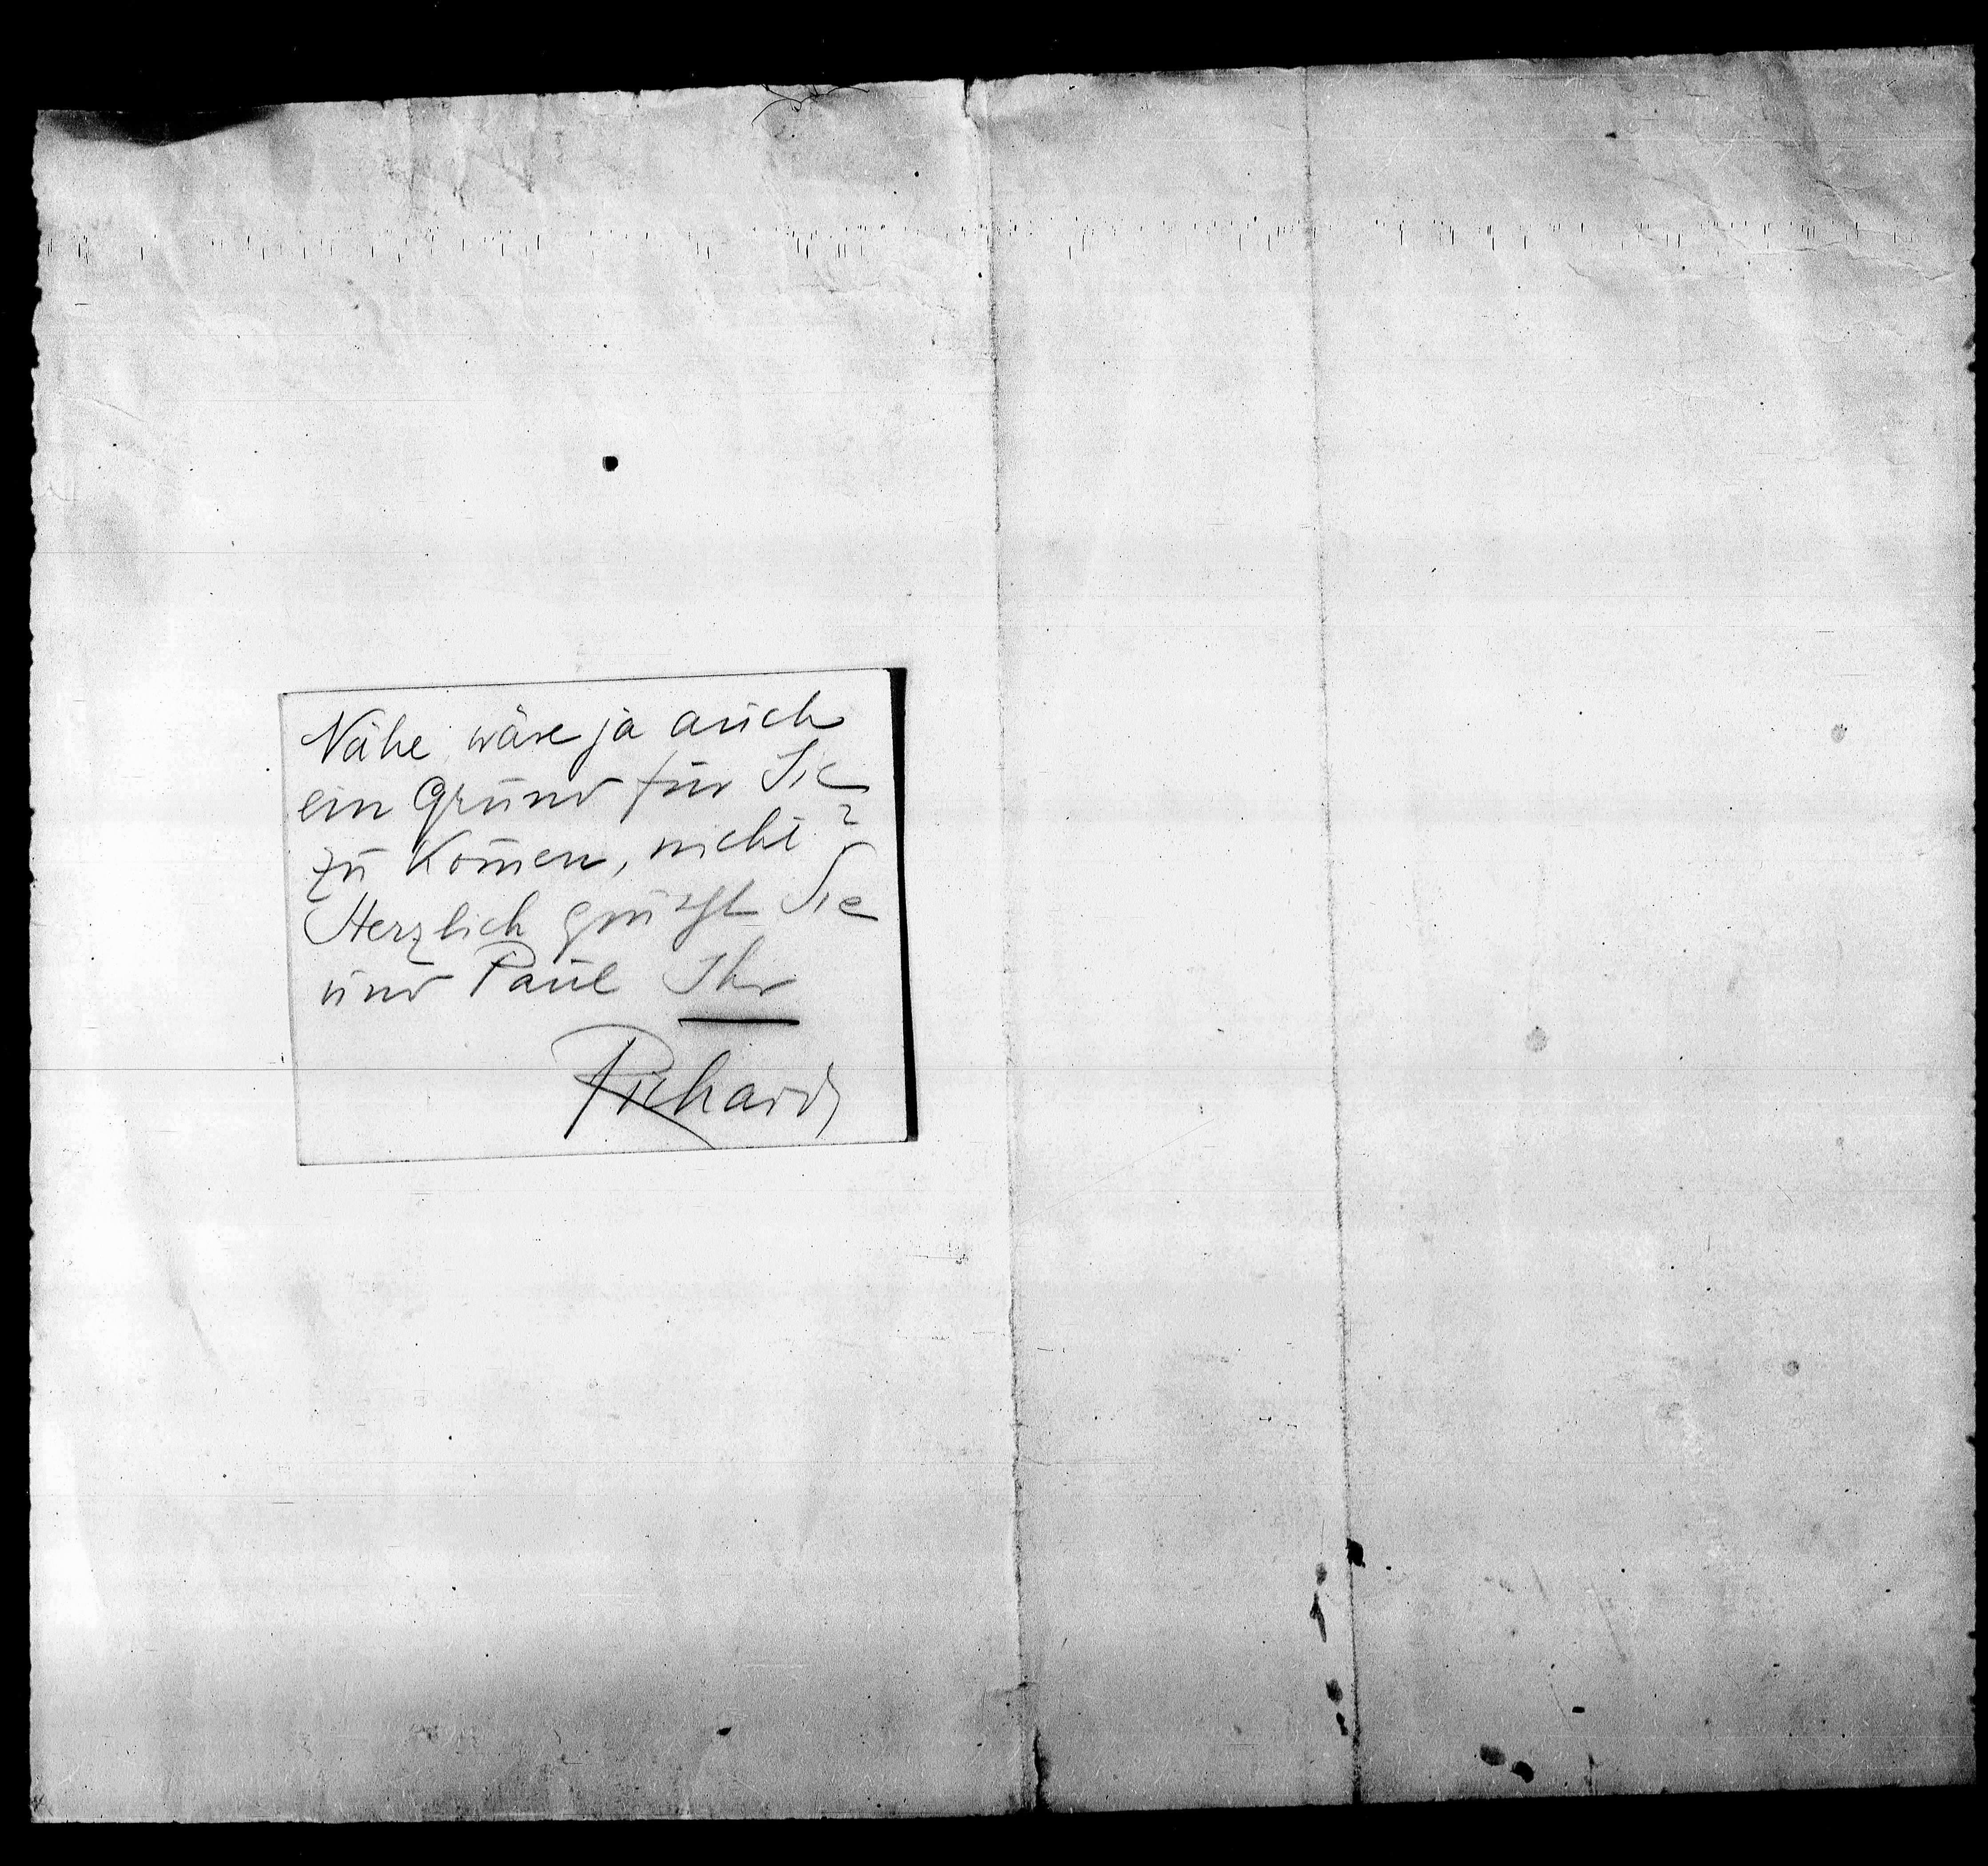 Nähe, wäre ja auch
ein Grund für Sie
zu kom̄en, nicht?
Herzlich grüsst Sie
und Paul Ihr
Richard